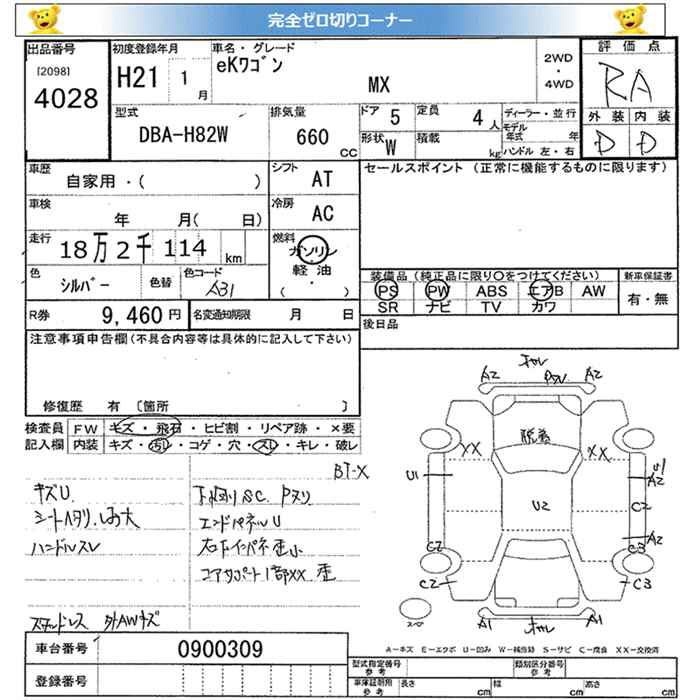 完全ゼロ切りコーナー
出品番号
[2098]
4028
初度登録年月
H21 1 月
車名・グレード
eKワゴン
MX
2WD
・
4WD
評価点
RA
型式
DBA-H82W
排気量
660 CC
ドア 5
定員 4 人
形状 W
積載 kg
ディーラー・並行
モデル年式 年
ハンドル 左・右
外装 内装
D D
車歴
自家用・( )
シフト
AT
車検
年 月( 日)
冷房
AC
走行
18万2千114 km
燃料
ガソリン
軽油
( ・ )
色
シルバー
色替
色コード
A31
R券 9,460 円
名変通知期限 月 日
セールスポイント (正常に機能するものに限ります)
装備品(純正品に限り○をつけてください)
新車保証書
PS PW ABS エアB AW
SR ナビ TV カワ
有・無
後日品
注意事項申告欄(不具合内容等は具体的に記入して下さい)
修復歴 有 〔箇所 〕
検査員
記入欄
FW キズ・飛石・ヒビ割・リペア跡・×要
内装 キズ・汚レ・コゲ・穴・スレ・キレ・破レ
BT-X
キズU.
シートヘタリ.しみ大
ハンドルスレ
下回りSC. Pヌリ
エンドパネルU
右下インパネ歪小
コアサポート1部XX 歪
スタッドレス 外AWキズ
キャレ
A2 Pスレ A2
脱着
XX XX
U1 U2 U1
A2
C2
A2
C2 C3
C2 C3
A1 キャレ A1
A-キズ E-エクボ U-凹み W-補修跡 S-サビ C-腐食 XX-交換済
車台番号 0900309
登録番号
型式指定番号
参考
類別区分番号
参考
車庫証明用
参考
長さ cm 幅 cm 高さ cm